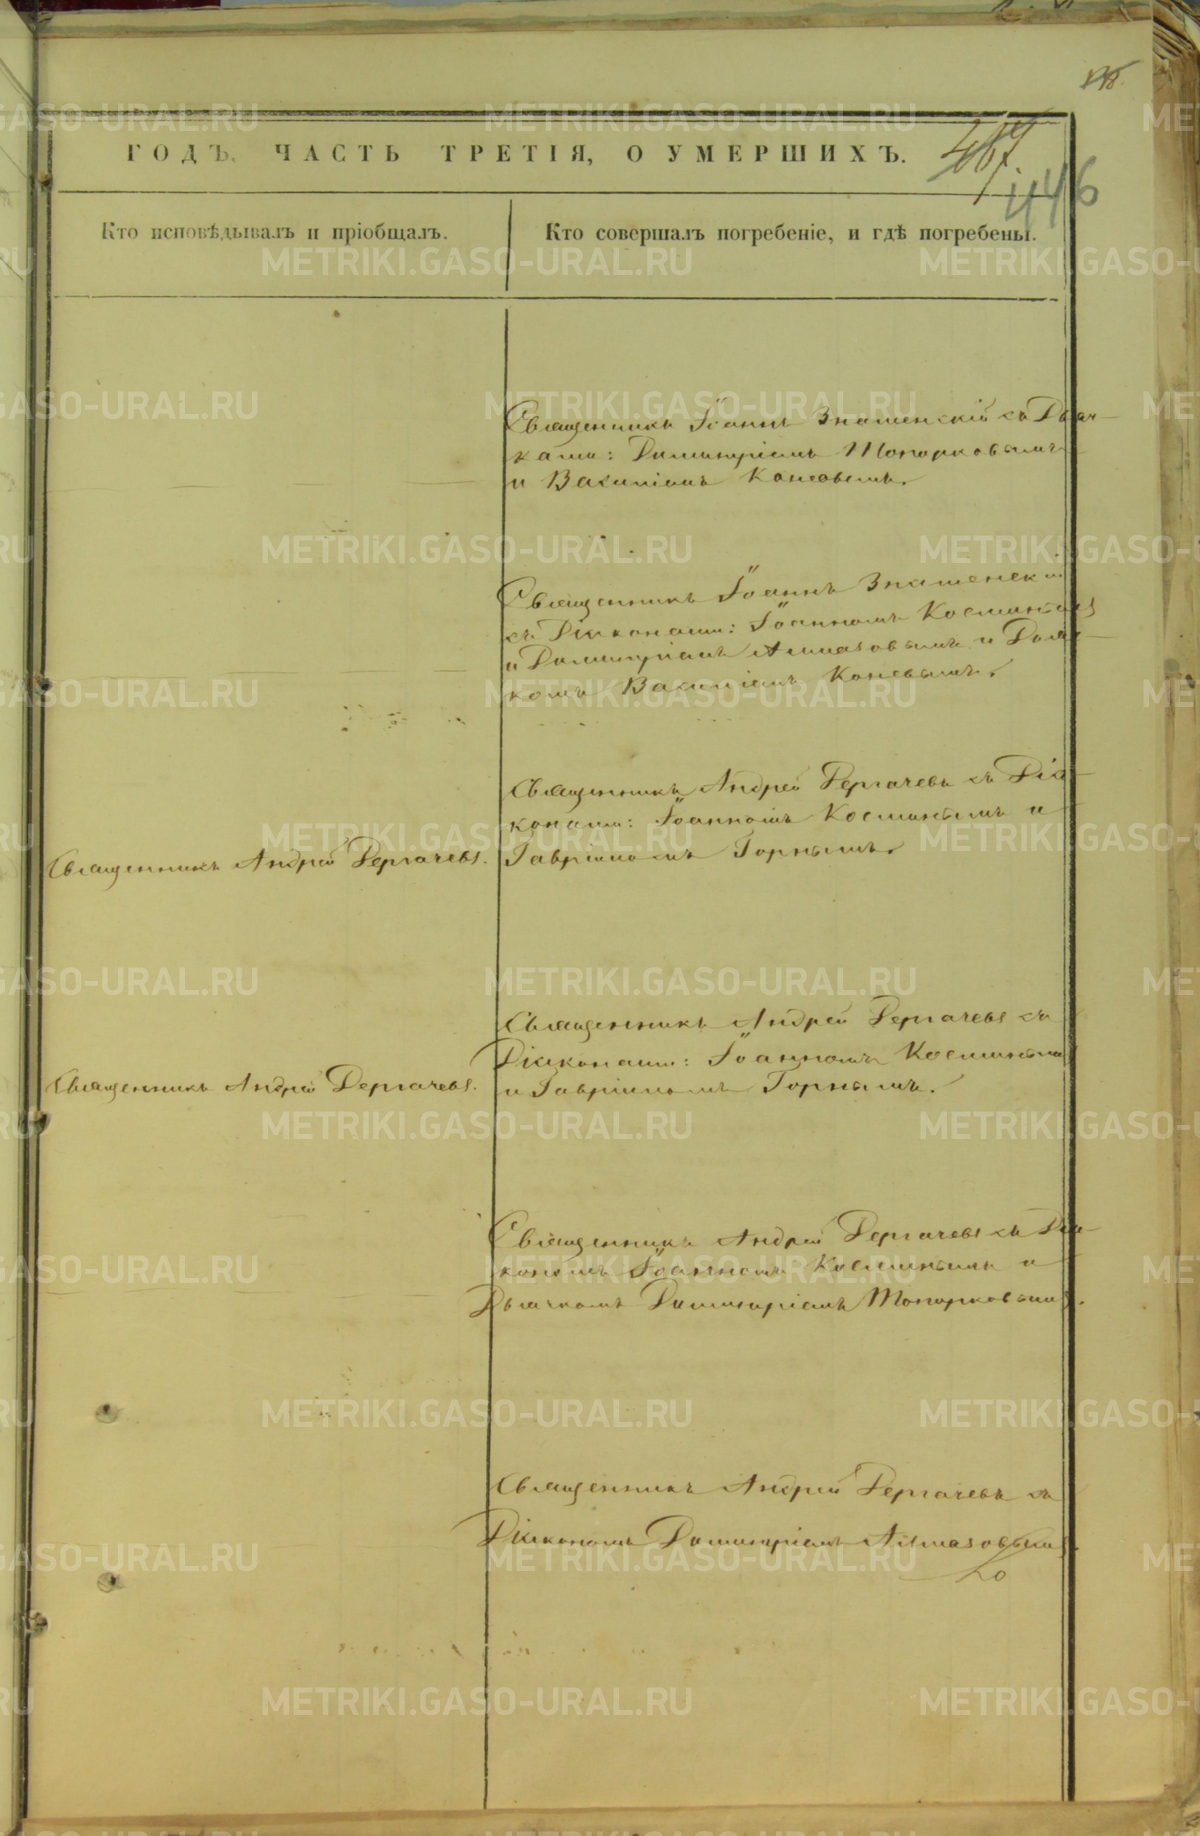 ГОДЪ, ЧАСТЬ ТРЕТІЯ, О УМЕРШИХЪ.
446
Кто исповѣдывалъ и пріобщалъ.
Кто совершалъ погребеніе, и гдѣ погребены.
Священникъ Іоаннъ Знаменскій съ Дьяч-
ками: Димитріемъ Топорковымъ
и Василіемъ Коневымъ.
Священникъ Іоаннъ Знаменскій
съ Діаконами: Іоанномъ Косминымъ
и Димитріемъ Алмазовымъ и Дьяч-
комъ Василіемъ Коневымъ.
Священникъ Андрей Дергачевъ.
Священникъ Андрей Дергачевъ съ Діа-
конами: Іоанномъ Косминымъ и
Гавріиломъ Горнымъ.
Священникъ Андрей Дергачевъ.
Священникъ Андрей Дергачевъ съ
Діаконами: Іоанномъ Косминымъ
и Гавріиломъ Горнымъ.
Священникъ Андрей Дергачевъ съ Діа-
кономъ Іоанномъ Косминымъ и
Дьячкомъ Димитріемъ Топорковымъ.
Священникъ Андрей Дергачевъ съ
Діакономъ Димитріемъ Алмазовымъ.
METRIKI.GASO-URAL.RU